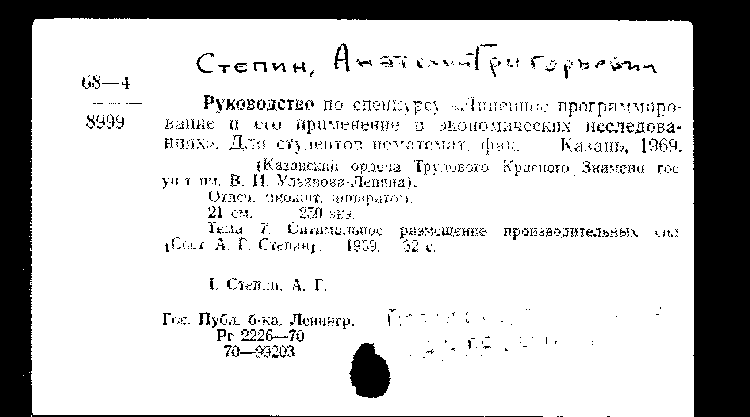 Степин, Анатолий Григорьевич
68—4
8999
Руководство по спецкурсу «Линейное программиро-
вание и его применение в экономических исследова-
ниях». Для студентов нематемат. фак. Казань, 1969.
(Казанский ордена Трудового Красного Знамени гос
ун-т им. В. И. Ульянова-Ленина).
Отпеч. множит. аппаратом.
21 см. 250 экз.
Тема 7. Оптимальное размещение производительных сил
(Сост. А. Г. Степин). 1969. 32 с.
I. Степин, А. Г.
Гос. Публ. б-ка. Ленингр.
Рг 2226—70
70—99203